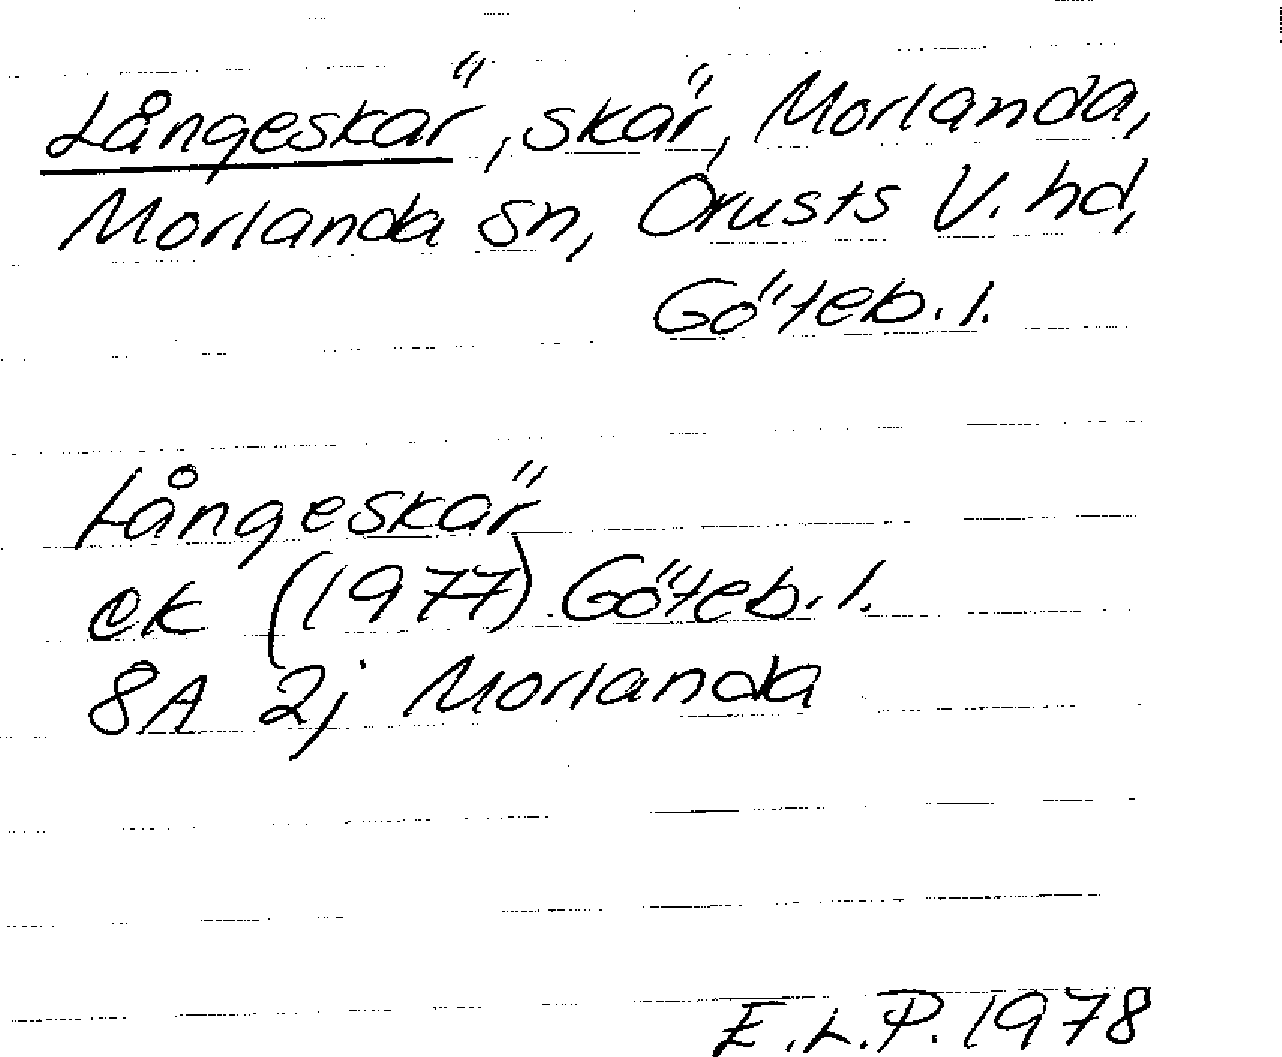 Långeskär, skär, Morlanda,
Morlanda sn, Orusts V. hd,
Göteb. l.
Långeskär
ek (1977) Göteb. l.
8A 2j Morlanda
E.L.P. 1978